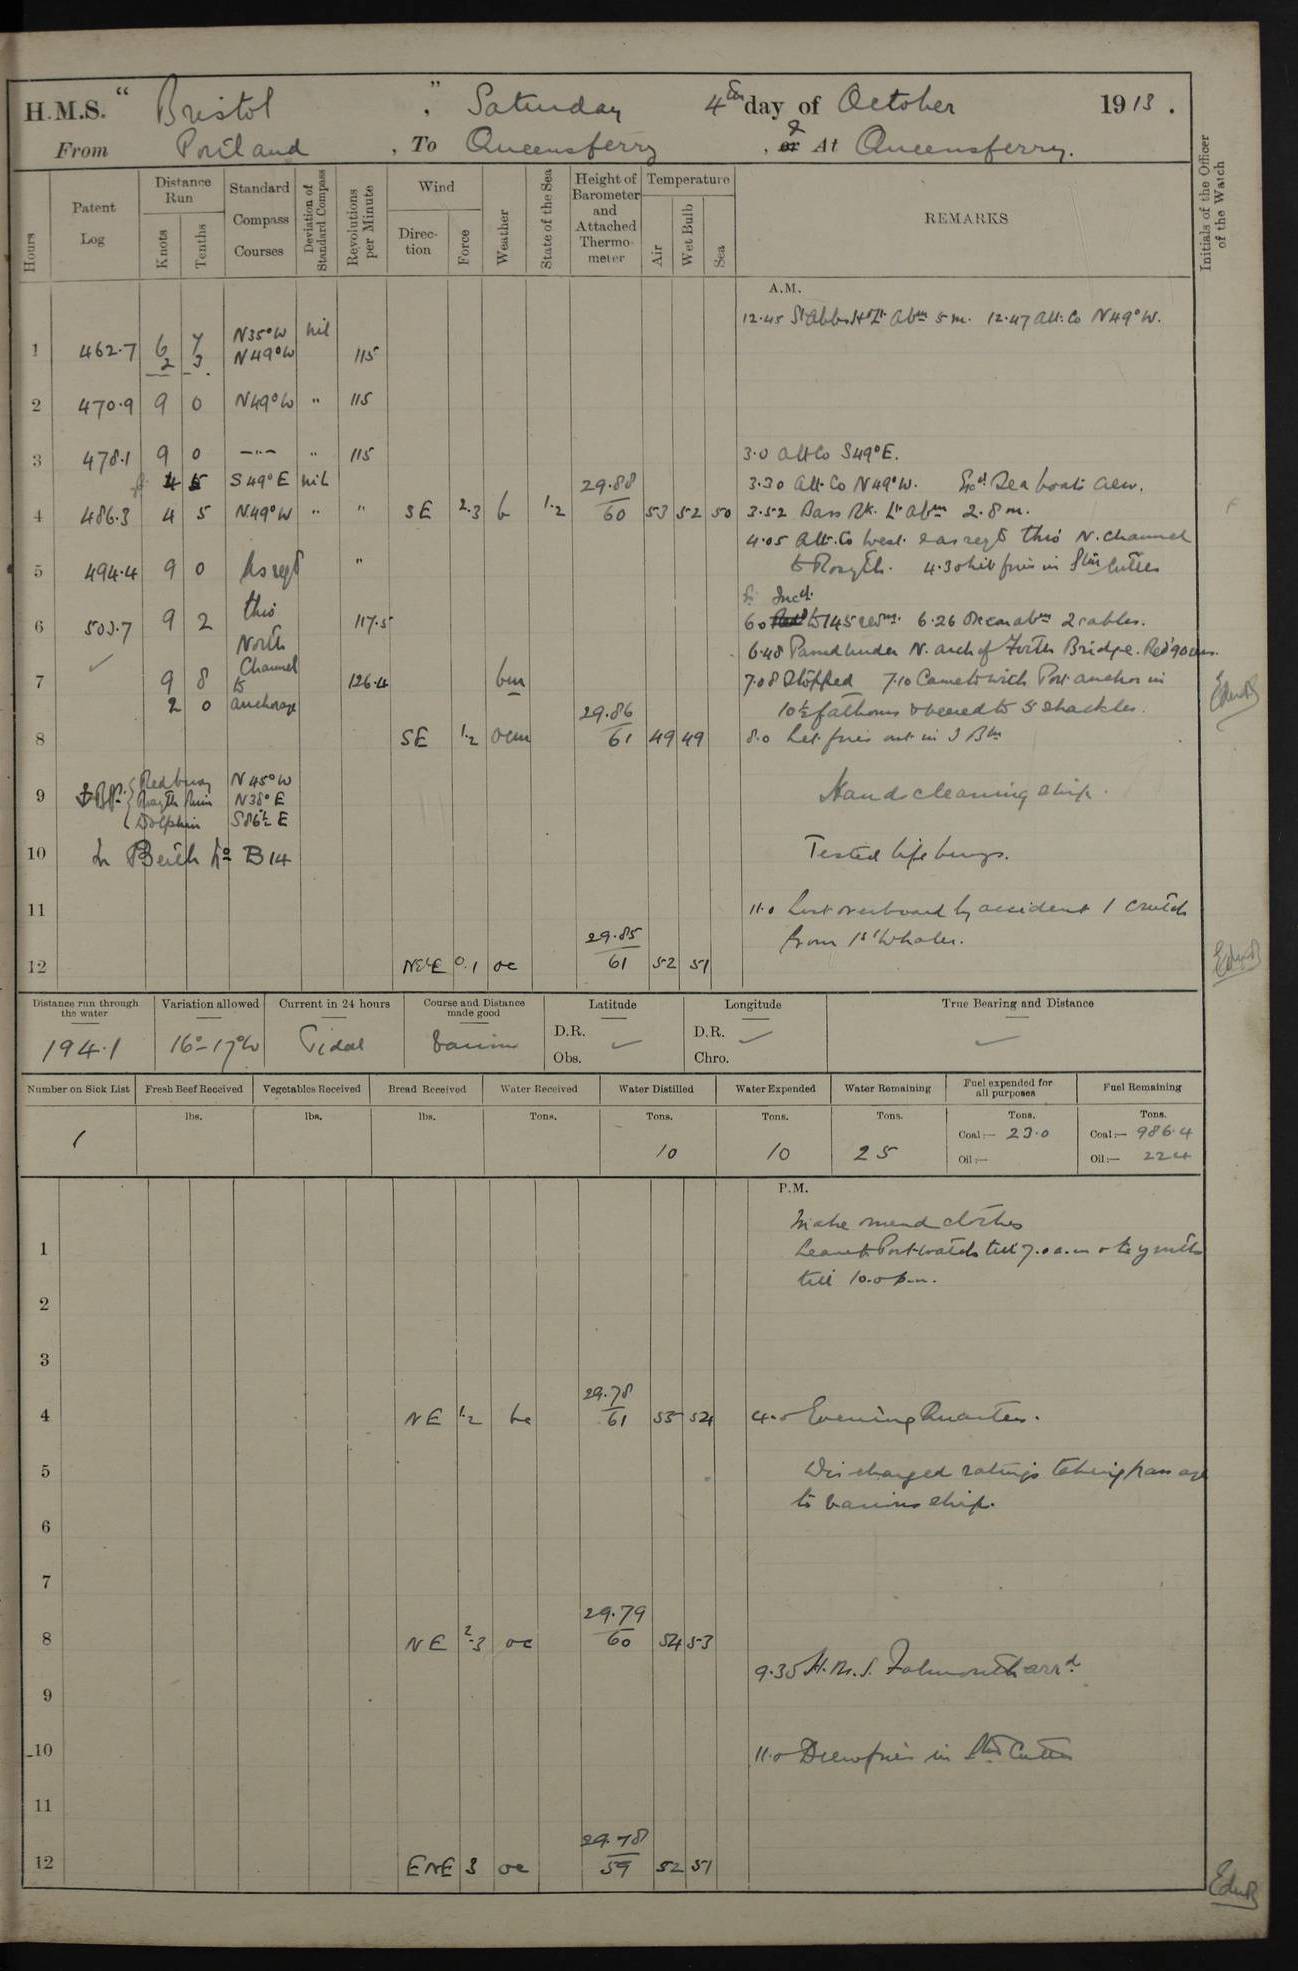 H.M.S. " Bristol " . Saturday 4th day of October 1913 .
From Portland , To Queensferry , or & At Queensferry.
Hours
Patent Log
Distance Run
Knots
Tenths
Standard Compass Courses
Deviation of Standard Compass
Revolutions per Minute
Wind
Direction
Force
Weather
State of the Sea
Height of Barometer and Attached Thermometer
Temperature
Air
Wet Bulb
Sea
REMARKS
Initials of the Officer of the Watch
A.M.
12.45 St Abbs Hd Lt Abm 5 m. 12.47 Alt. Co N49°W.
6 7 N35°W nil
1 462.7 2 3 N49°W 115
2 470.9 9 0 N49°W " 115
3 478.1 9 0 —"— " 115 3.0 Alt Co S49°E.
4 5 S49°E nil 29.88 3.30 Alt. Co N49°W. Exd Sea boats crew.
4 486.3 4 5 N49°W " " SE 2.3 b 1.2 60 53 52 50 3.52 Bass Rk. Lt abm 2.8 m.
4.05 Alt. Co West. & as reqd thro' N. Channel
5 494.4 9 0 As reqd " to Rosyth. 4.30 lit fires in Stm Cutter
Incd.
6 503.7 9 2 thro' 117.5 6.0 to 145 revns. 6.26 Oxcar abm 2 cables.
North
6.48 Passed under N. arch of Forth Bridge. Red 90 revs.
7 9 8 Channel to 126.4 bm 7.08 Stopped 7.10 Came to with Port anchor in
2 0 anchorage 29.86 10½ fathoms & veered to 5 shackles.
8 SE 1.2 ocm 61 49 49 8.0 Let fires out in 3 Brs
Redbuoy N45°W
9 Rosyth Ruin N38°E Hands cleaning ship.
Dolphin S86½E
10 In Berth No B14 Tested life buoys.
11 11.0 Lost overboard by accident 1 crutch
29.85 from 1st Whaler.
12 NEbE 0.1 oc 61 52 51
Distance run through the water
Variation allowed
Current in 24 hours
Course and Distance made good
Latitude
Longitude
True Bearing and Distance
194.1 16°-17°W Tidal Various D.R. Obs. D.R. Chro.
Number on Sick List
Fresh Beef Received
Vegetables Received
Bread Received
Water Received
Water Distilled
Water Expended
Water Remaining
Fuel expended for all purposes
Fuel Remaining
lbs. lbs. lbs. Tons. Tons. Tons. Tons. Tons. Tons.
1 10 10 25 Coal:— 23.0 Coal:— 986.4
Oil:— Oil:— 224
P.M.
Make & mend clothes
1 Leave to Port watch till 7.0 a.m &
till 10.0 p.m.
2
3
29.78
4 NE 1.2 bc 61 55 54 4.0 Evening Quarters.
5 Discharged ratings taking passage
to various ships.
6
7
29.79
8 NE 2.3 oc 60 54 53
9.35 H.M.S. Falmouth arrd.
9
10 11.0 Drew fires in Stm Cutter
11
29.78
12 ENE 3 oc 59 52 51